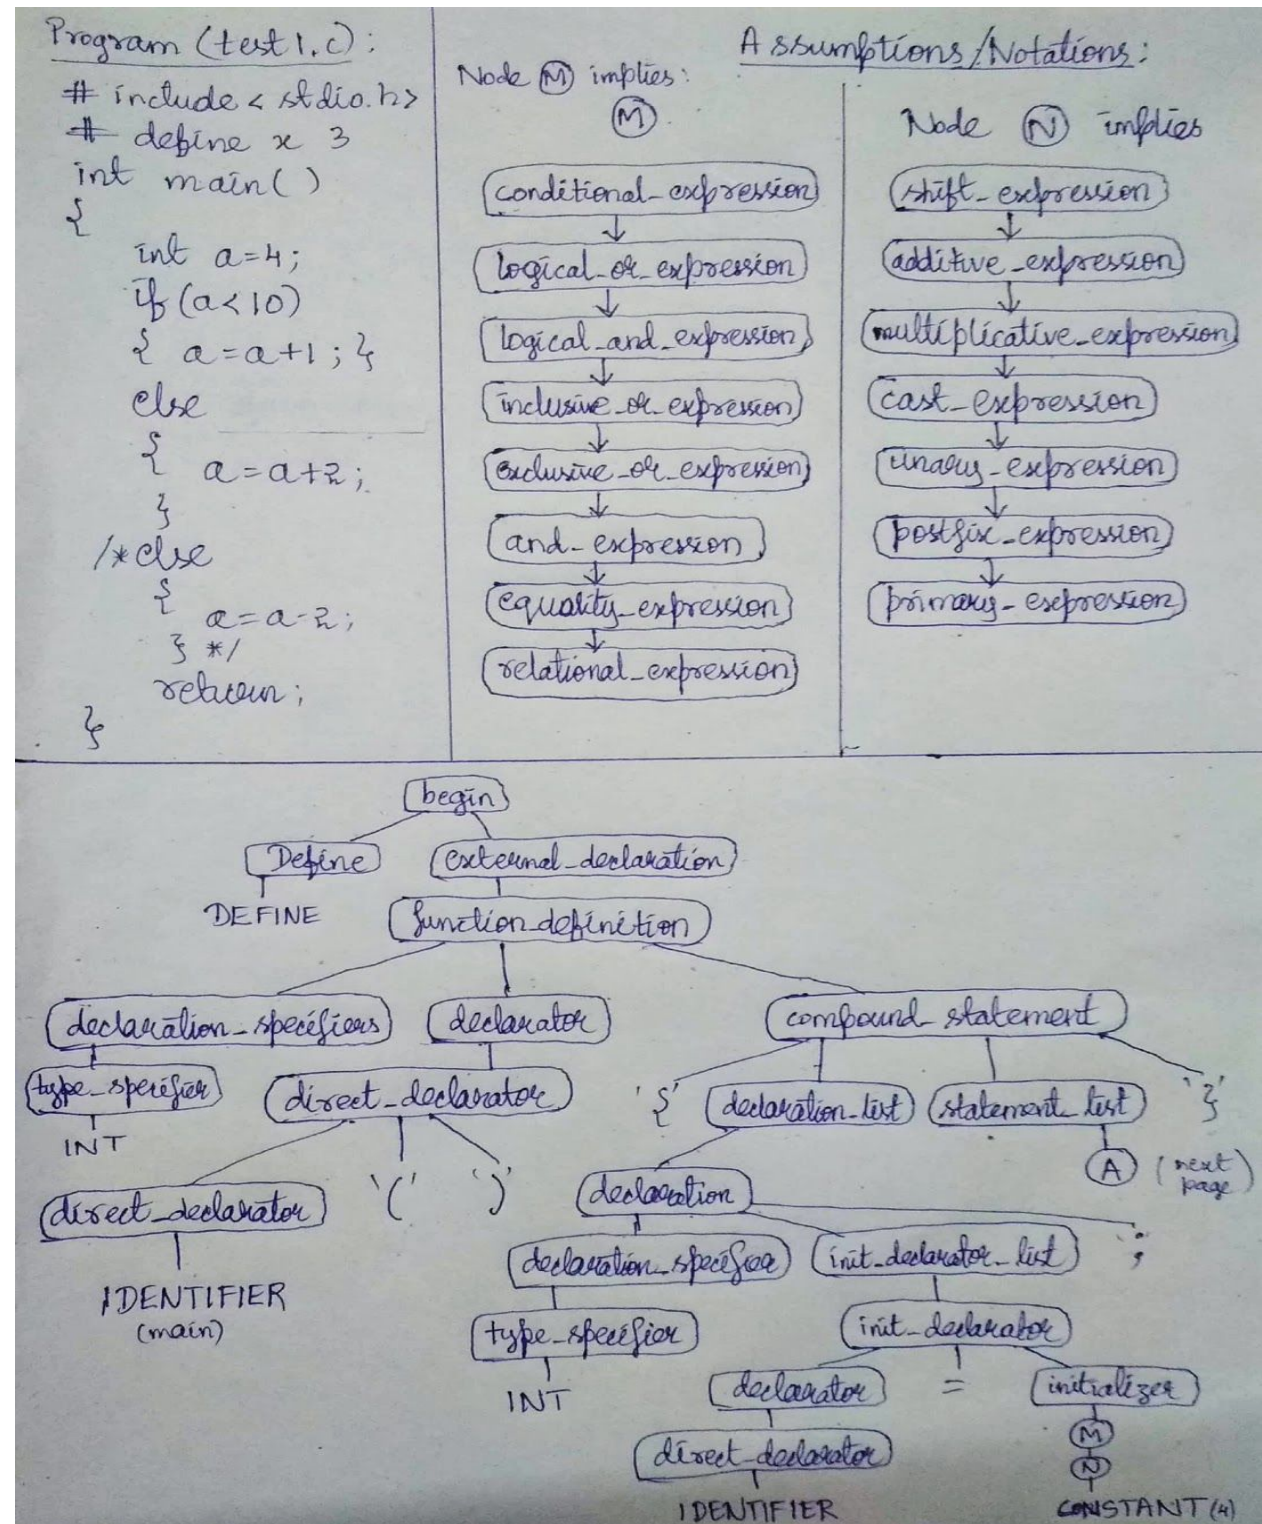 Program (test1.c):
# include < stdio.h>
# define x 3
int main()
{
int a=4;
if (a<10)
{ a=a+1; }
else
{ a=a+2;
}
/*else
{
a=a-2;
} */
return;
}
Assumptions/Notations:
Node M implies:
M
conditional_expression
logical_or_expression
logical_and_expression
inclusive_or_expression
exclusive_or_expression
and_expression
equality_expression
relational_expression
Node N implies
shift_expression
additive_expression
multiplicative_expression
cast_expression
unary_expression
postfix_expression
primary_expression
begin
Define external_declaration
DEFINE function_definition
declaration_specifiers declarator compound_statement
type_specifier direct_declarator '{' declaration_list statement_list '}'
INT A (next page)
direct_declarator '(' ')' declaration
declaration_specifier init_declarator_list ';'
IDENTIFIER
(main)
type_specifier init_declarator
INT declarator = initializer
direct_declarator M
N
IDENTIFIER CONSTANT(4)